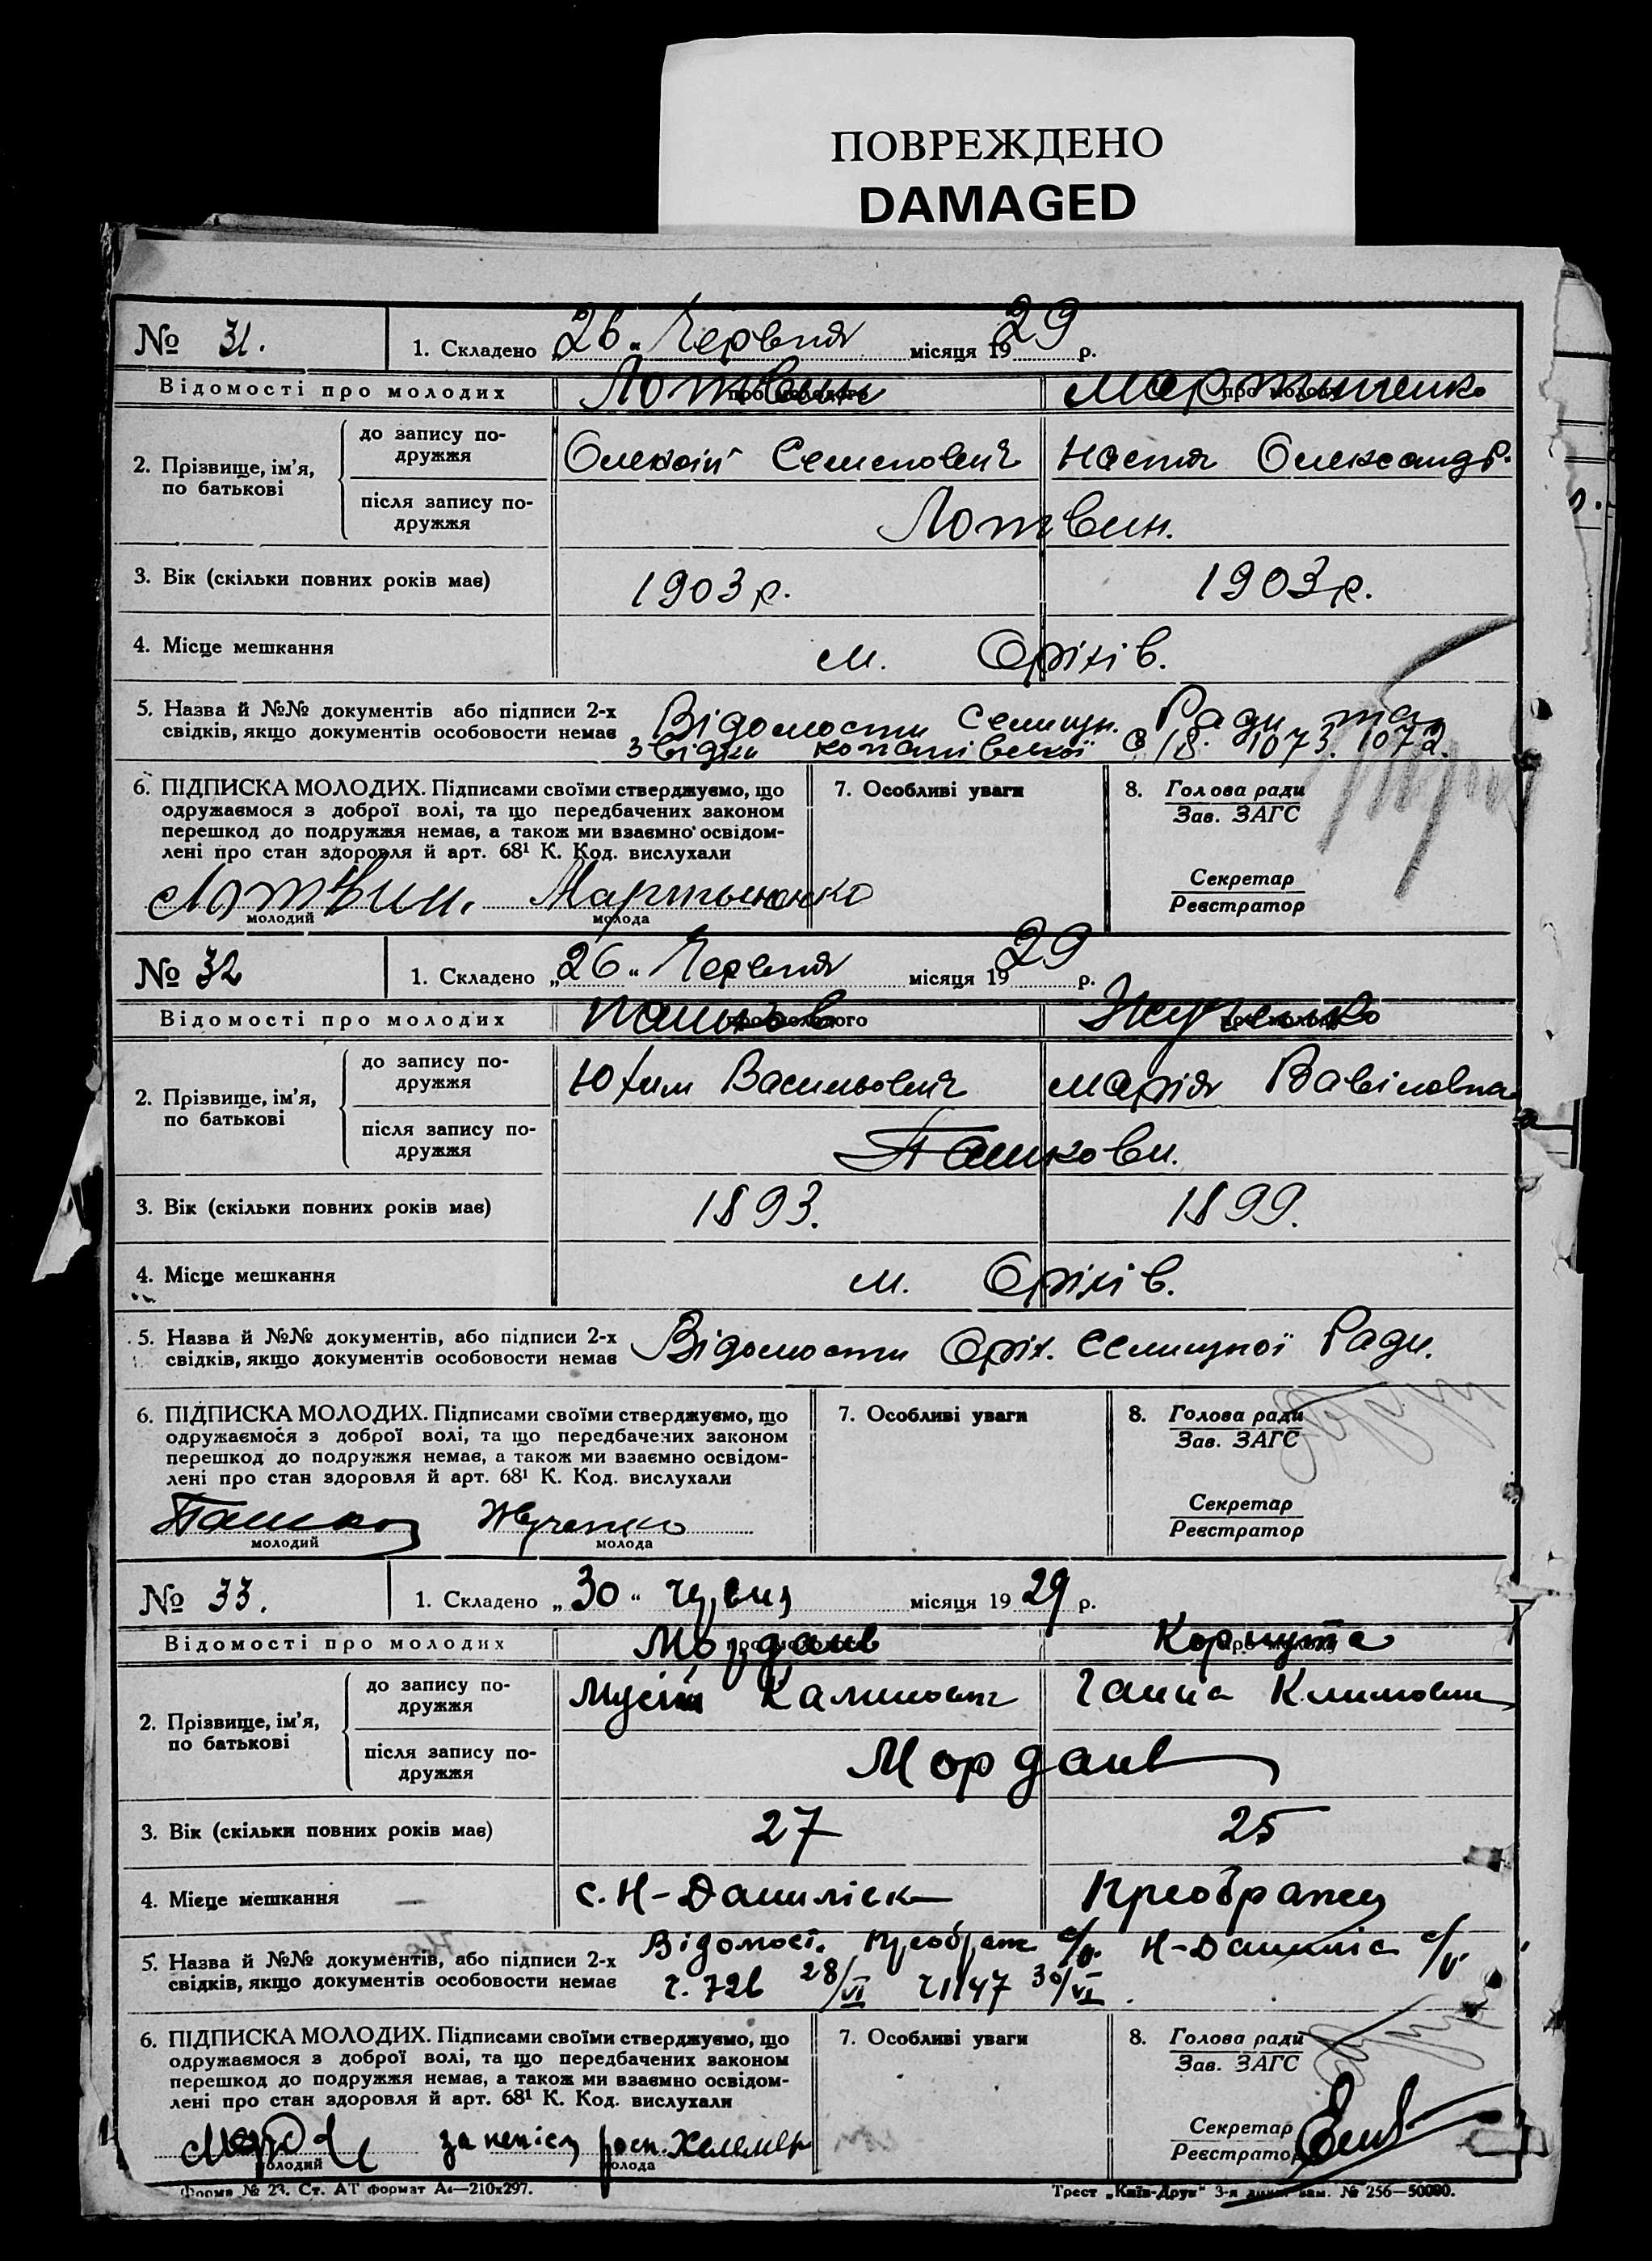 ПОВРЕЖДЕНО
DAMAGED
№ 31. 1. Складено „26“ Червня місяця 1929 р.
Відомості про молодих Лотвин Мартыненко
2. Прізвище, ім’я, по батькові
до запису подружжя Олексій Семенович Настя Олександр.
після запису подружжя Лотвин.
3. Вік (скільки повних років має) 1903 р. 1903 р.
4. Місце мешкання м. Оріхів.
5. Назва й №№ документів або підписи 2-х Відомости Селищн. Ради та
свідків, якщо документів особовости немає Звідки копанівської 1073. 1072.
6. ПІДПИСКА МОЛОДИХ. Підписами своїми стверджуємо, що 7. Особливі уваги 8. Голова ради
одружаємося з доброї волі, та що передбачених законом Зав. ЗАГС
перешкод до подружжя немає, а також ми взаємно освідом-
лені про стан здоровля й арт. 68¹ К. Код. вислухали
Секретар
Лотвин. Мартыненко Реєстратор
молодий молода
№ 32 1. Складено „26“ Червня місяця 1929 р.
Відомості про молодих про молодого Пашков Жученко
2. Прізвище, ім’я, по батькові
до запису подружжя Юхим Васильович Марія Вавіловна
після запису подружжя Пашкови.
3. Вік (скільки повних років має) 1893. 1899.
4. Місце мешкання м. Оріхів.
5. Назва й №№ документів, або підписи 2-х Відомости Оріх. Селищної Ради.
свідків, якщо документів особовости немає
6. ПІДПИСКА МОЛОДИХ. Підписами своїми стверджуємо, що 7. Особливі уваги 8. Голова ради
одружаємося з доброї волі, та що передбачених законом Зав. ЗАГС
перешкод до подружжя немає, а також ми взаємно освідом-
лені про стан здоровля й арт. 68¹ К. Код. вислухали
Секретар
Пашков Жученко Реєстратор
молодий молода
№ 33. 1. Складено „30“ червня місяця 1929 р.
Відомості про молодих Мордань Корнута
2. Прізвище, ім’я, по батькові
до запису подружжя Мусій Калинович Ганна Климовна
після запису подружжя Мордань
3. Вік (скільки повних років має) 27 25
4. Місце мешкання с. Н-Даниліск Преображен
5. Назва й №№ документів, або підписи 2-х Відомосі. Преображ с/р. Н-Даниліс с/р
свідків, якщо документів особовости немає ч. 726 28/VI ч 1147 30/VI.
6. ПІДПИСКА МОЛОДИХ. Підписами своїми стверджуємо, що 7. Особливі уваги 8. Голова ради
одружаємося з доброї волі, та що передбачених законом Зав. ЗАГС
перешкод до подружжя немає, а також ми взаємно освідом-
лені про стан здоровля й арт. 68¹ К. Код. вислухали
Секретар
за непісм росп. Реєстратор
молодий молода
Форма № 23. Ст. АТ формат А₄—210х297. Трест „Київ-Друк“ 3-я друк. зам. № 256—50000.